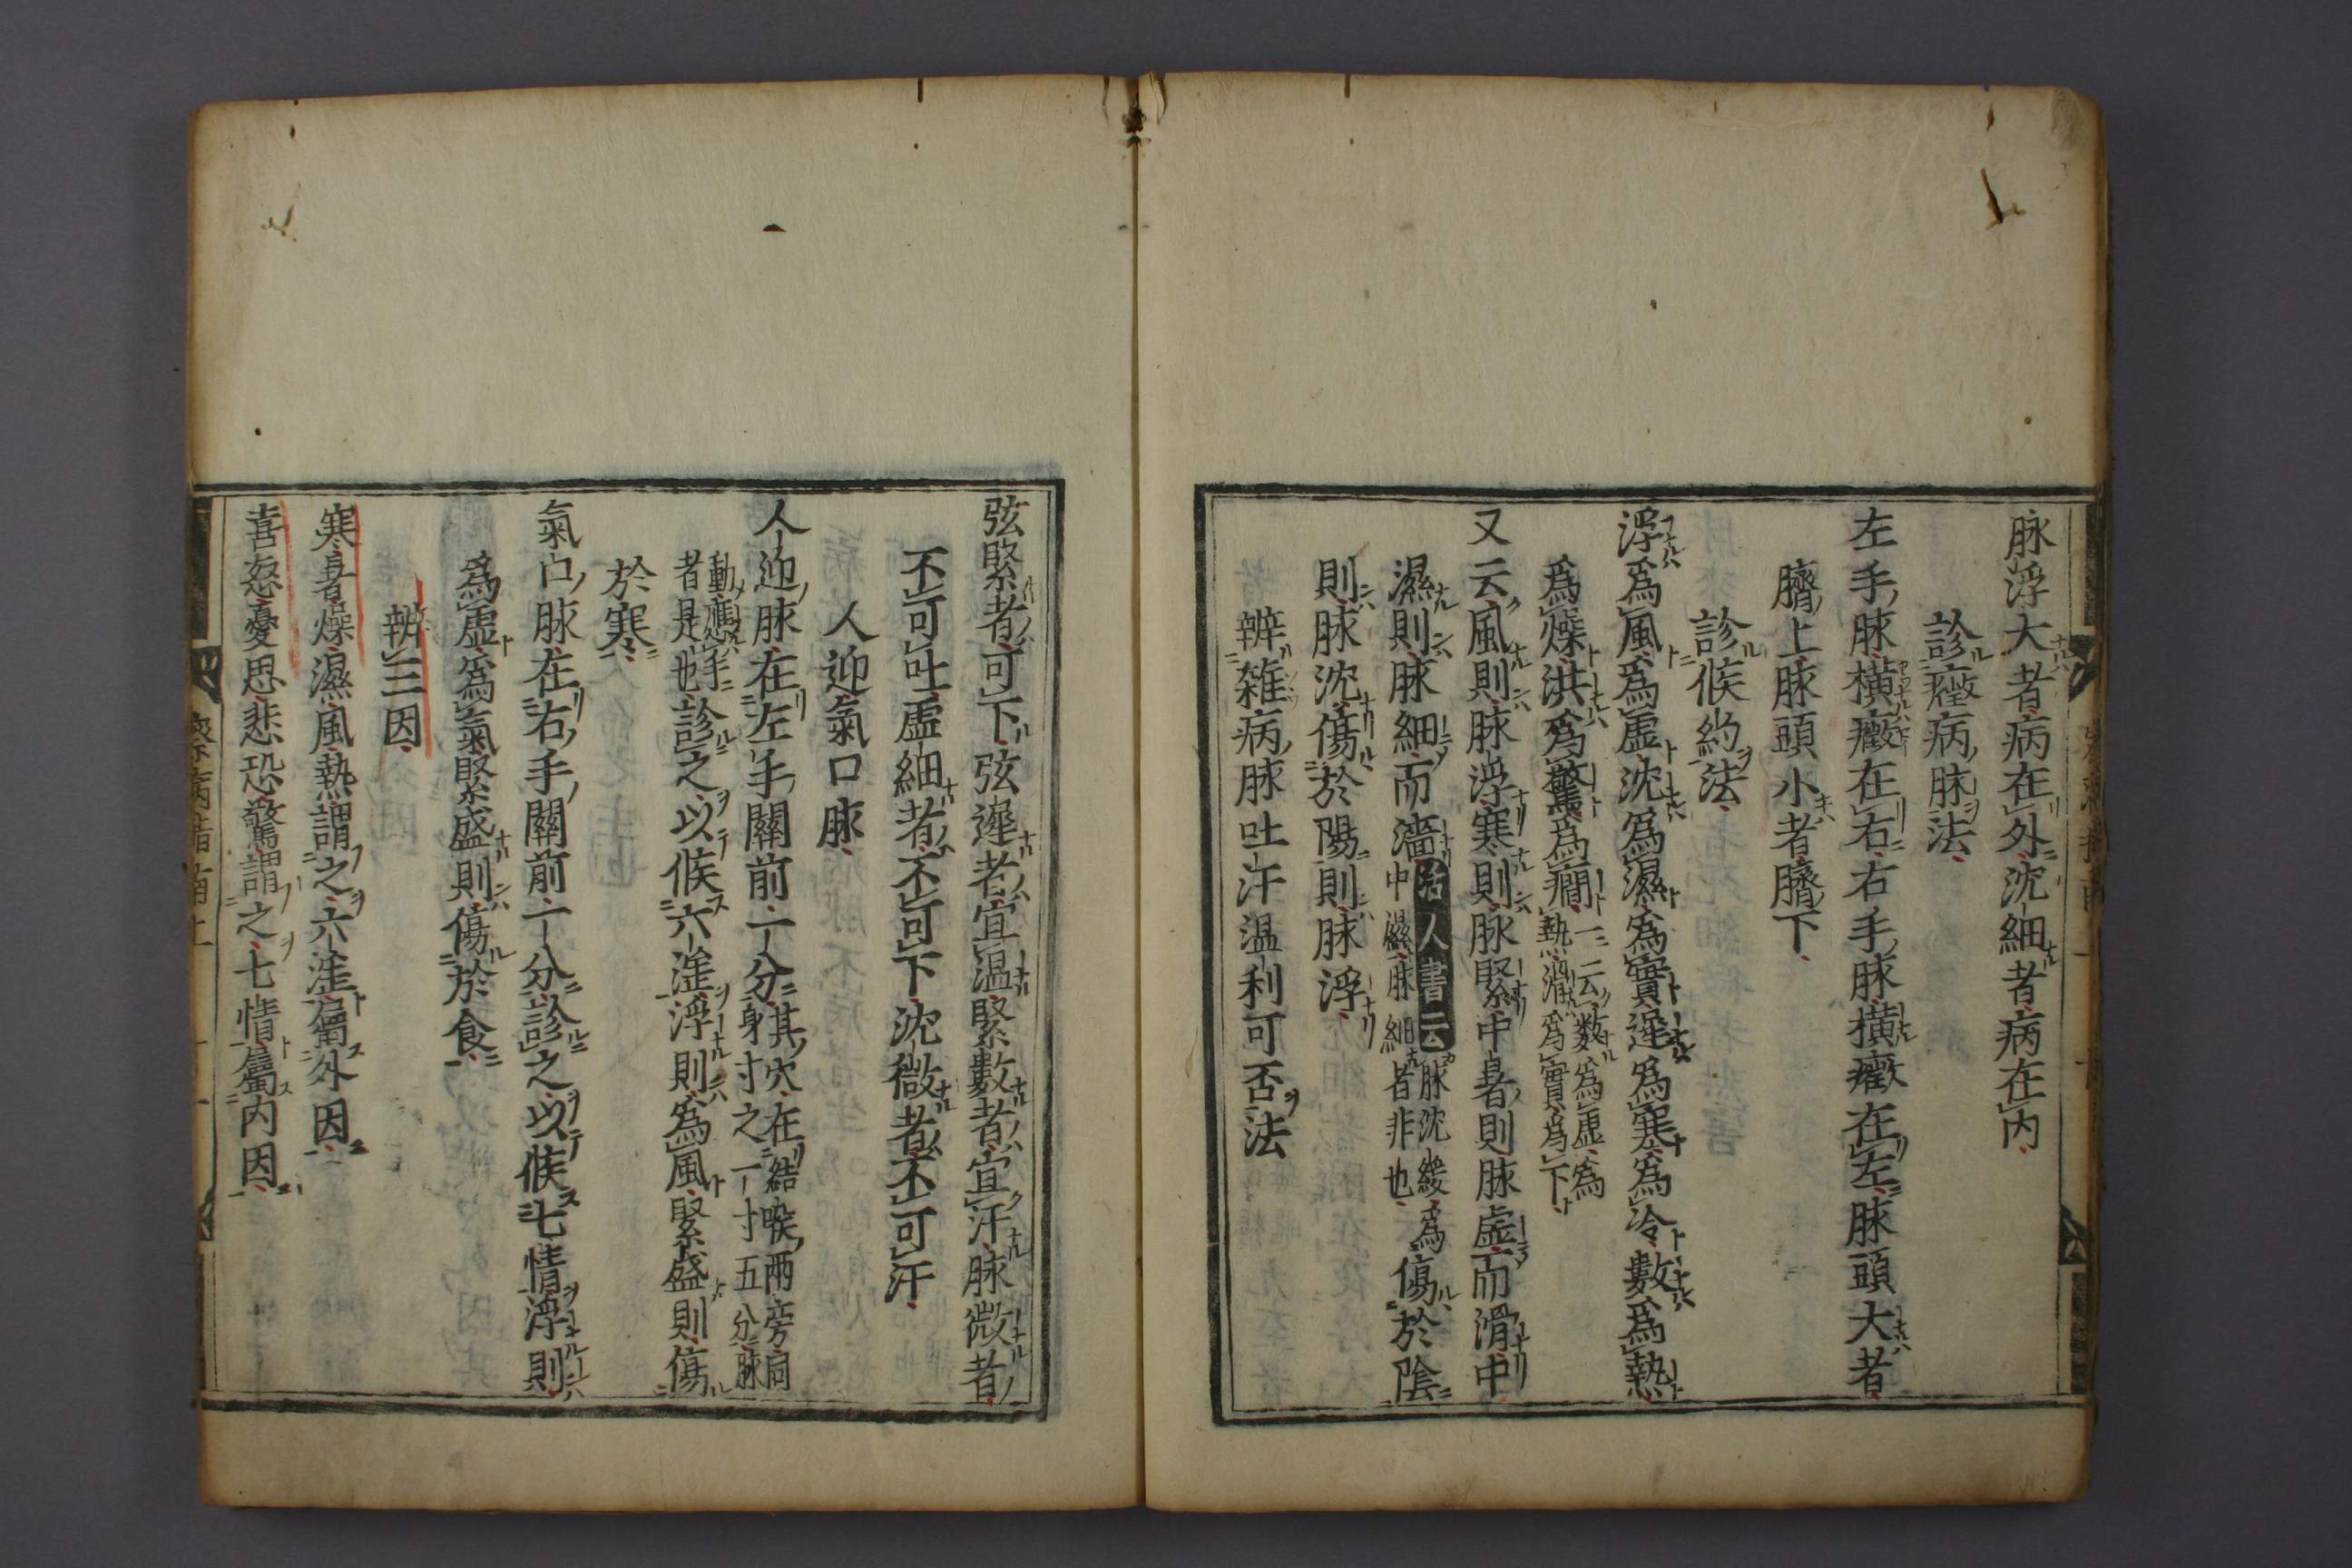 脉浮大者病在外沈細者病在内
診癥病脉法
左手脉横癥在右右手脉横癥在左脉頭大者
臍上脉頭小者臍下
診候約法
浮爲風爲虚沈爲濕爲實遲爲寒爲冷數爲熱
爲燥洪爲驚爲癇一云數爲虚爲熱滑爲實爲下
又云風則脉浮寒則脉緊中暑則脉虚而滑中
濕則脉細而濇活人書云脉沈緩爲中濕脉細者非也傷於陰
則脉沈傷於陽則脉浮
辨雜病脉吐汗温利可否法
弦緊者可下弦遲者宜温緊數者宜汗脉微者
不可吐虚細者不可下沈微者不可汗
人迎氣口脉
人迎脉在左手關前一分其穴在結喉兩旁同身寸之一寸五分脉
動應手者是也診之以候六淫浮則爲風緊盛則傷
於寒
氣口脉在右手關前一分診之以候七情浮則
爲虚爲氣緊盛則傷於食
辨三因
寒暑燥濕風熱謂之六淫屬外因
喜怒憂思悲恐驚謂之七情屬内因
察病指南上